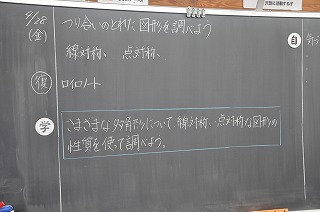 5/28
(金)
つり合いのとれた図形を調べよう
線対称、点対称、
復 ロイロノート
学 さまざまな多角形について線対称、点対称な図形の
性質を使って調べよう。
自